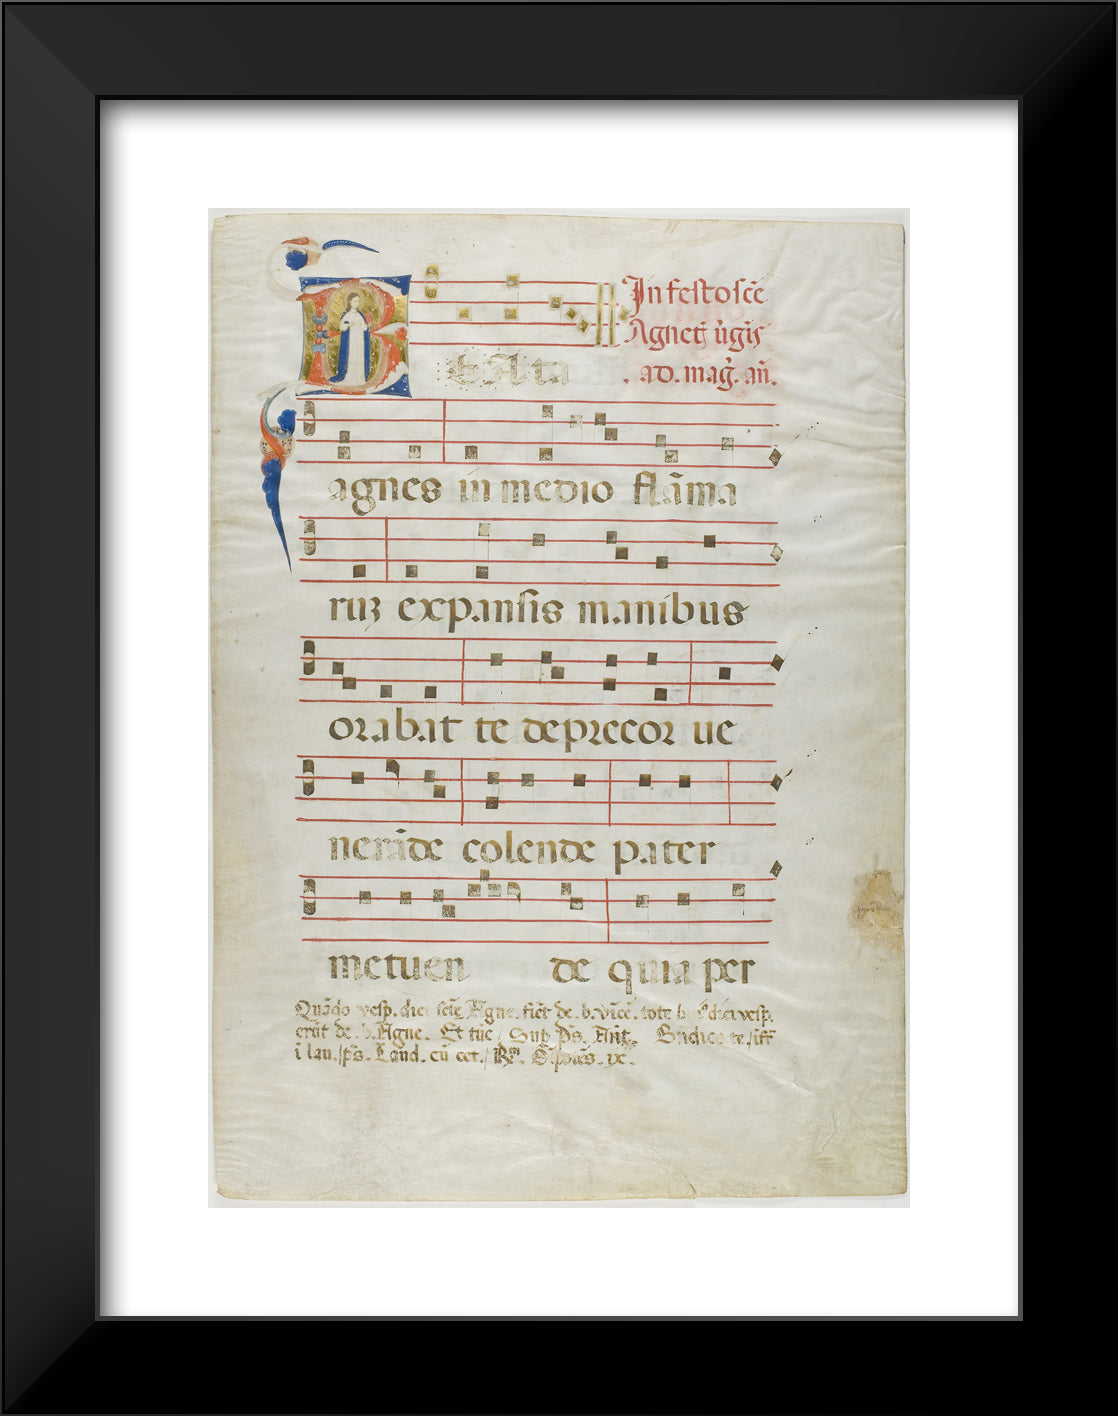 In festo sc̄e
Agnet᷒ v̓gīs
. ad. mag̓. an̄.
BEAta
agnes in medio flāma
ruꝫ expansis manibus
orabat te deprecor ue
nerāde colende pater
metuen de quia per
Quādo vesp. dici scē Agne. fiēt de. b. vīcē. tote dici vesp.
erūt de .b. Agne. Et tūc Sup p̄s. Ant̄. Bn̄dico te.
i lau. p̄s. Laud. cū cet.